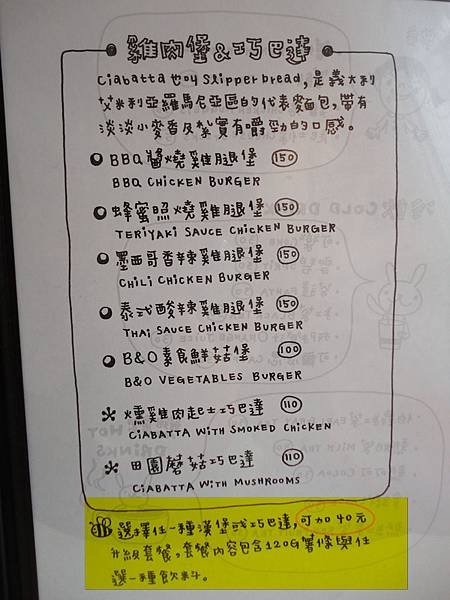 雞肉堡&巧巴達
Ciabatta也叫Slipper bread,是義大利
艾米利亞羅馬尼亞區的代表麵包,帶有
淡淡小麥香及紮實有嚼勁的口感。
BBQ醬燒雞腿堡 150
BBQ CHICKEN BURGER
蜂蜜照燒雞腿堡 150
TERIYAKI SAUCE CHICKEN BURGER
墨西哥香辣雞腿堡 150
CHILI CHICKEN BURGER
泰式酸辣雞腿堡 150
THAI SAUCE CHICKEN BURGER
B&O素食鮮菇堡 100
B&O VEGETABLES BURGER
燻雞肉起士巧巴達 110
CIABATTA WITH SMOKED CHICKEN
田園蘑菇巧巴達 110
CIABATTA WITH MUSHROOMS
選擇任一種漢堡或巧巴達,可加40元
升級套餐,套餐內容包含120G薯條與任
選一種飲料。